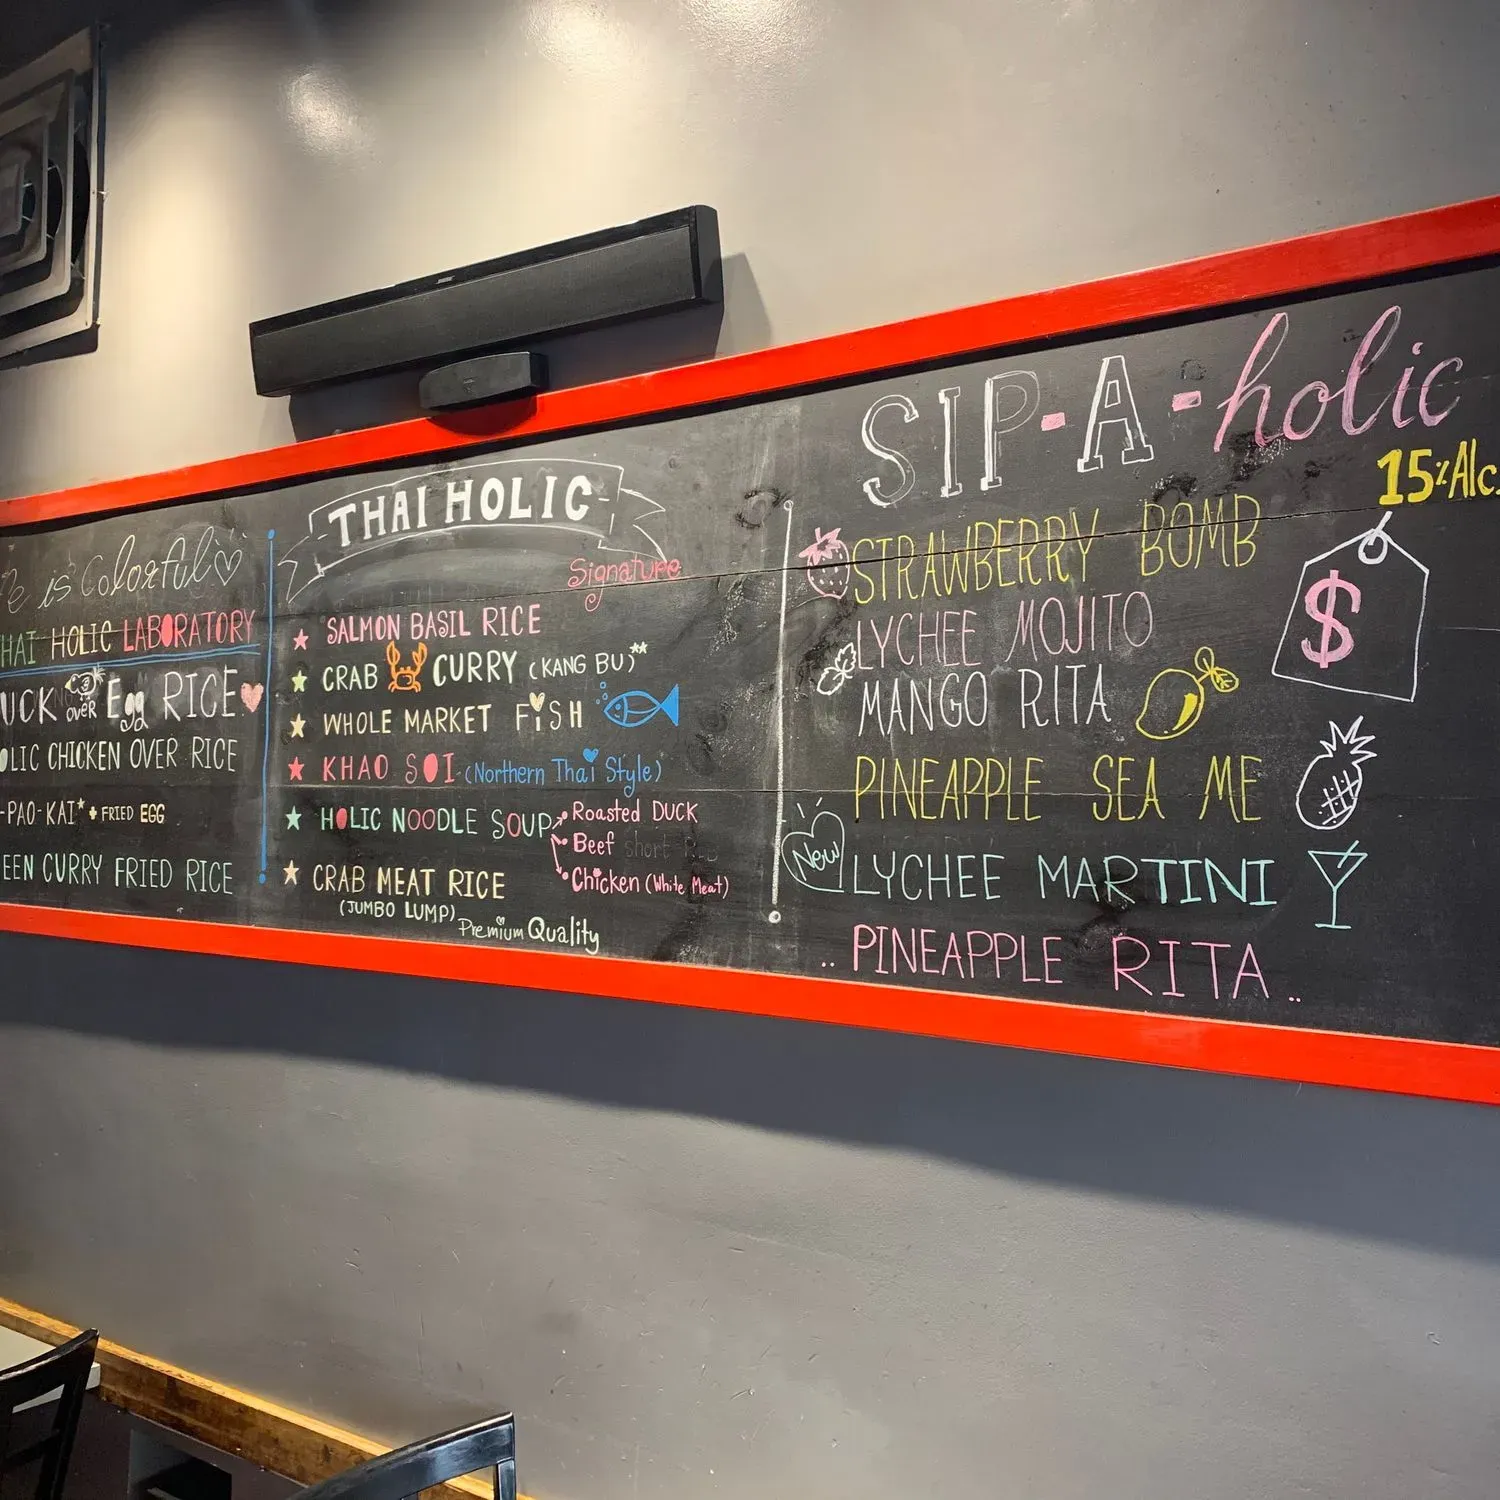 is Colorful
HAI HOLIC LABORATORY
UCK OVER Egg RICE
OLIC CHICKEN OVER RICE
-PAO-KAI* + FRIED EGG
EEN CURRY FRIED RICE
THAI HOLIC
Signature
SALMON BASIL RICE
CRAB CURRY (KANG BU)**
WHOLE MARKET FISH
KHAO SOI (Northern Thai Style)
HOLIC NOODLE SOUP
Roasted DUCK
Beef short Rib
Chicken (White Meat)
CRAB MEAT RICE
(JUMBO LUMP)
Premium Quality
SIP-A-holic
15% Alc.
STRAWBERRY BOMB
LYCHEE MOJITO
MANGO RITA
$
PINEAPPLE SEA ME
New LYCHEE MARTINI
.. PINEAPPLE RITA ..